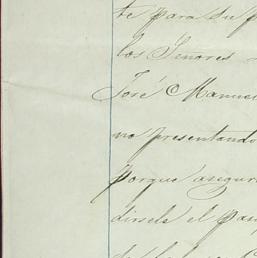 te para su p
los Senores
José Manuel
no presentando
porque asegur
dirsele el pas